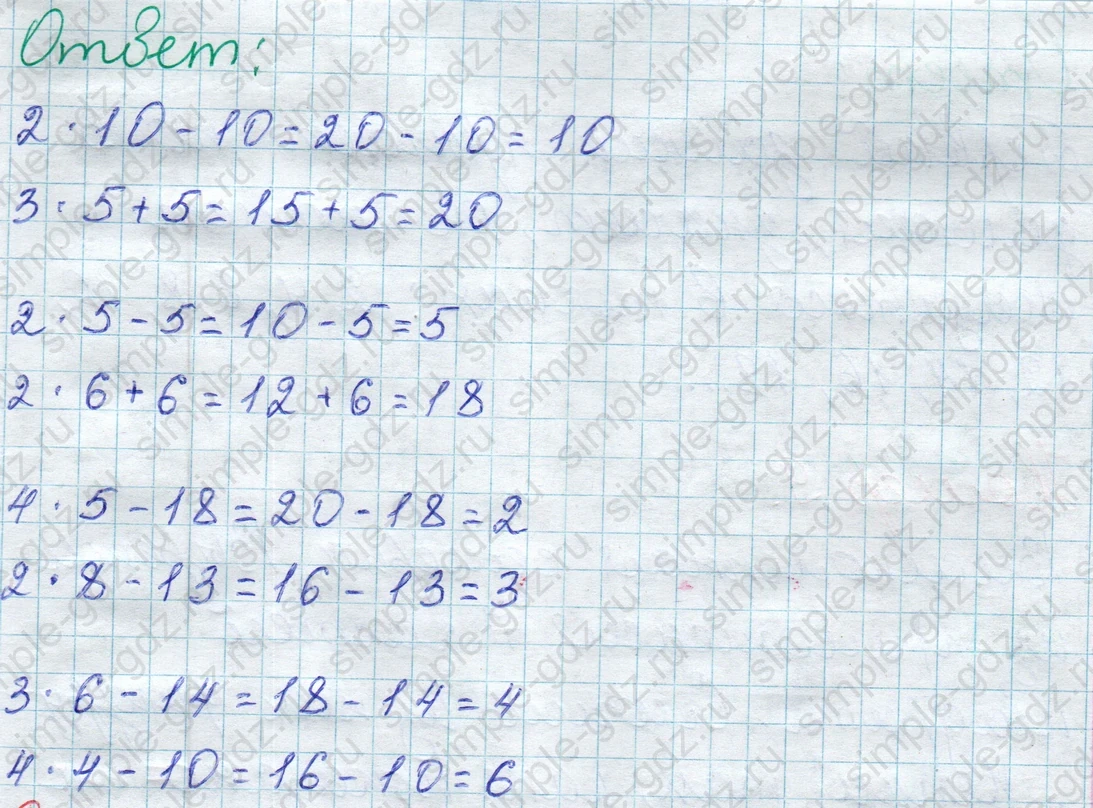 Ответ:
2 · 10 - 10 = 20 - 10 = 10
3 · 5 + 5 = 15 + 5 = 20
2 · 5 - 5 = 10 - 5 = 5
2 · 6 + 6 = 12 + 6 = 18
4 · 5 - 18 = 20 - 18 = 2
2 · 8 - 13 = 16 - 13 = 3
3 · 6 - 14 = 18 - 14 = 4
4 · 4 - 10 = 16 - 10 = 6
simple-gdz.ru